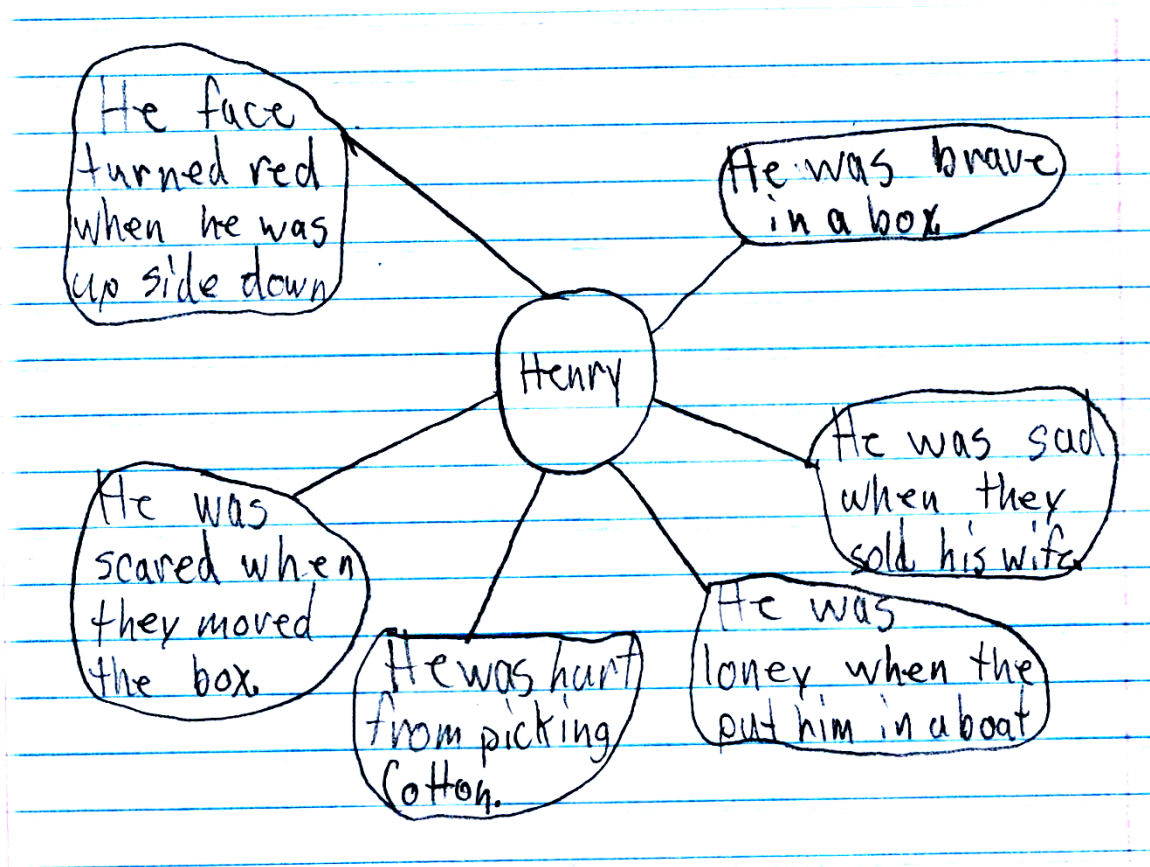 He face
turned red
when he was
up side down
He was brave
in a box.
Henry
He was sad
when they
sold his wife.
He was
scared when
they moved
the box.
He was hurt
from picking
Cotton.
He was
loney when the
put him in a boat